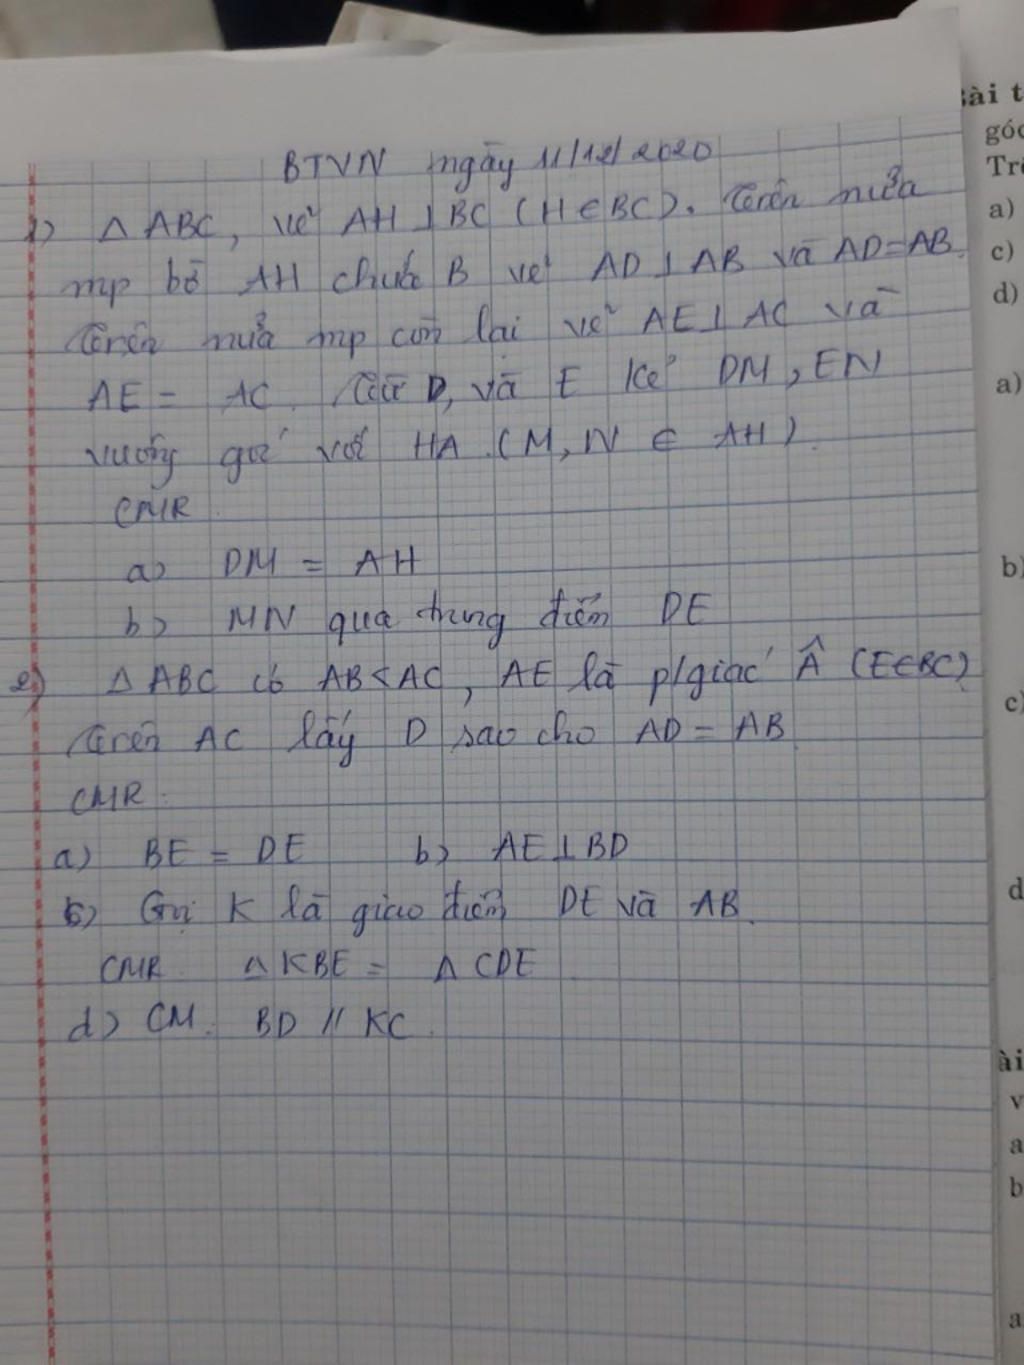 BTVN ngày 11/12/2020
1) Δ ABC, vẽ AH ⊥ BC (H ∈ BC). Trên nửa
mp bờ AH chứa B vẽ AD ⊥ AB và AD = AB.
Trên nửa mp còn lại vẽ AE ⊥ AC và
AE = AC. Từ D, và E kẻ DM, EN
vuông góc với HA (M, N ∈ AH).
CMR
a) DM = AH
b) MN qua trung điểm DE
2) Δ ABC có AB < AC, AE là p/giác Â (E∈BC)
Trên AC lấy D sao cho AD = AB
CMR:
a) BE = DE b) AE ⊥ BD
c) Gọi K là giao điểm DE và AB.
CMR. Δ KBE = Δ CDE
d) CM: BD // KC.
ài t
góc
a)
c)
d)
a)
b)
c)
d
ài
v
a
b
a